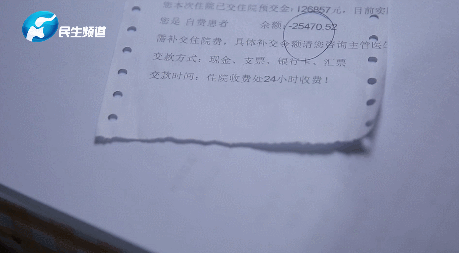 民生频道
您本次住院已交住院预交金:126857元,目前实
您是 自费患者 余额:-25470.52
需补交住院费,具体补交金额请您咨询主管医
交款方式:现金、支票、银行卡、汇票
交款时间:住院收费处24小时收费!